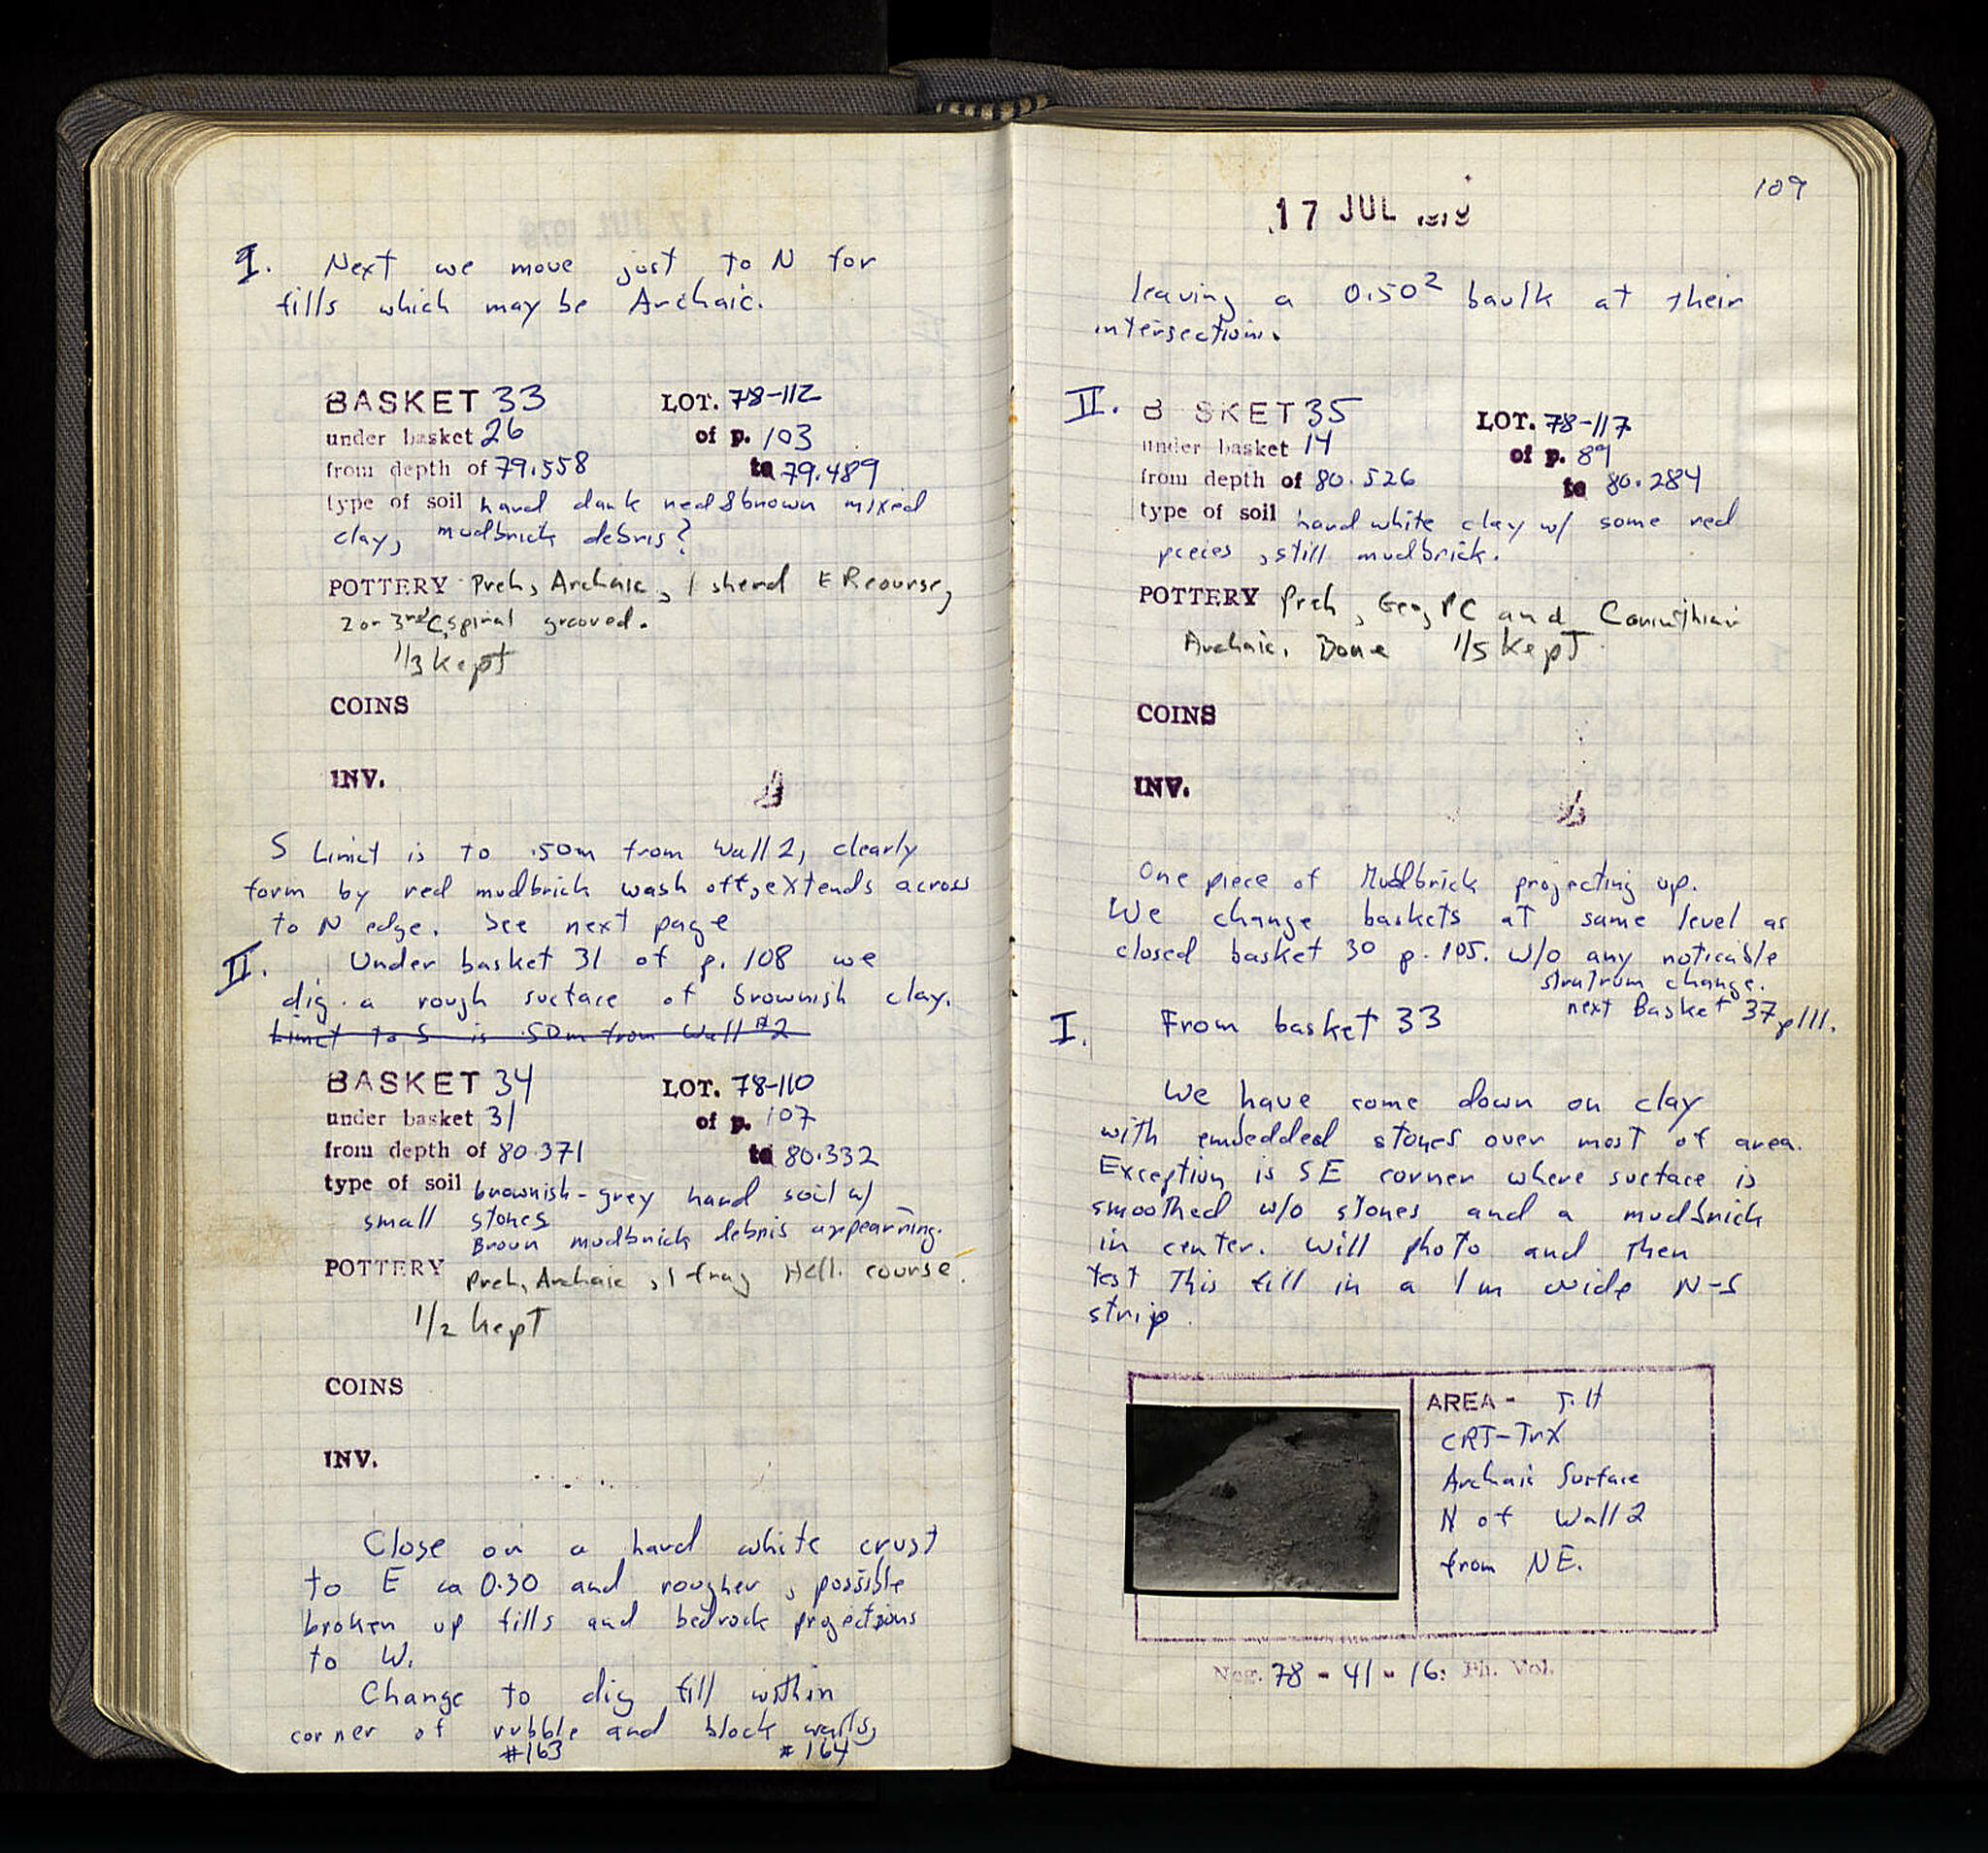 I. Next we move just to N for
fills which may be Archaic.
BASKET 33 LOT. 78-112
under basket 26 of p. 103
from depth of 79.558 to 79.489
type of soil hard dark red & brown mixed
clay, mudbrick debris?
POTTERY Preh, Archaic, 1 sherd ER course,
2 or 3rd C, spiral grooved.
1/3 kept
COINS
INV.
S Limit is to .50m from Wall 2, clearly
form by red mudbrick wash off, extends across
to N edge. See next page
II. Under basket 31 of p. 108 we
dig a rough surface of brownish clay.
Limit to S is .50m from Wall #2
BASKET 34 LOT. 78-110
under basket 31 of p. 107
from depth of 80.371 to 80.332
type of soil brownish-grey hard soil w/
small stones
Brown mudbrick debris appearning.
POTTERY Preh, Archaic, 1 frag Hell. course.
1/2 kept
COINS
INV.
Close on a hard white crust
to E ca 0.30 and rougher, possible
broken up fills and bedrock projections
to W.
Change to dig fill within
corner of rubble and block walls,
#163 #164
109
17 JUL
leaving a 0.50² baulk at their
intersection.
II. B SKET 35 LOT. 78-117
under basket 14 of p. 89
from depth of 80.526 to 80.284
type of soil hard white clay w/ some red
pieces, still mudbrick.
POTTERY Preh, Geo, PC and Corinthian
Archaic. Bone 1/5 kept
COINS
INV.
One piece of Mudbrick projecting up.
We change baskets at same level as
closed basket 30 p. 105. w/o any noticable
stratum change.
next Basket 37 p 111.
I. From basket 33
We have come down on clay
with embedded stones over most of area.
Exception is SE corner where surface is
smoothed w/o stones and a mudbrick
in center. Will photo and then
test This fill in a 1m wide N-S
strip.
AREA - T.H
CRT-TrX
Archaic Surface
N of Wall 2
from NE.
Neg. 78-41-16: Ph. Vol.